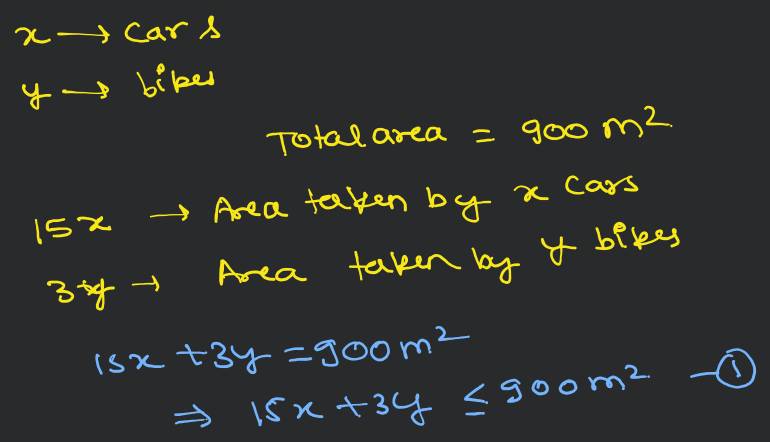 x → cars
y → bikes
Total area = 900 m²
15x → Area taken by x cars
3y → Area taken by y bikes
15x + 3y = 900 m²
⇒ 15x + 3y ≤ 900 m² — ①